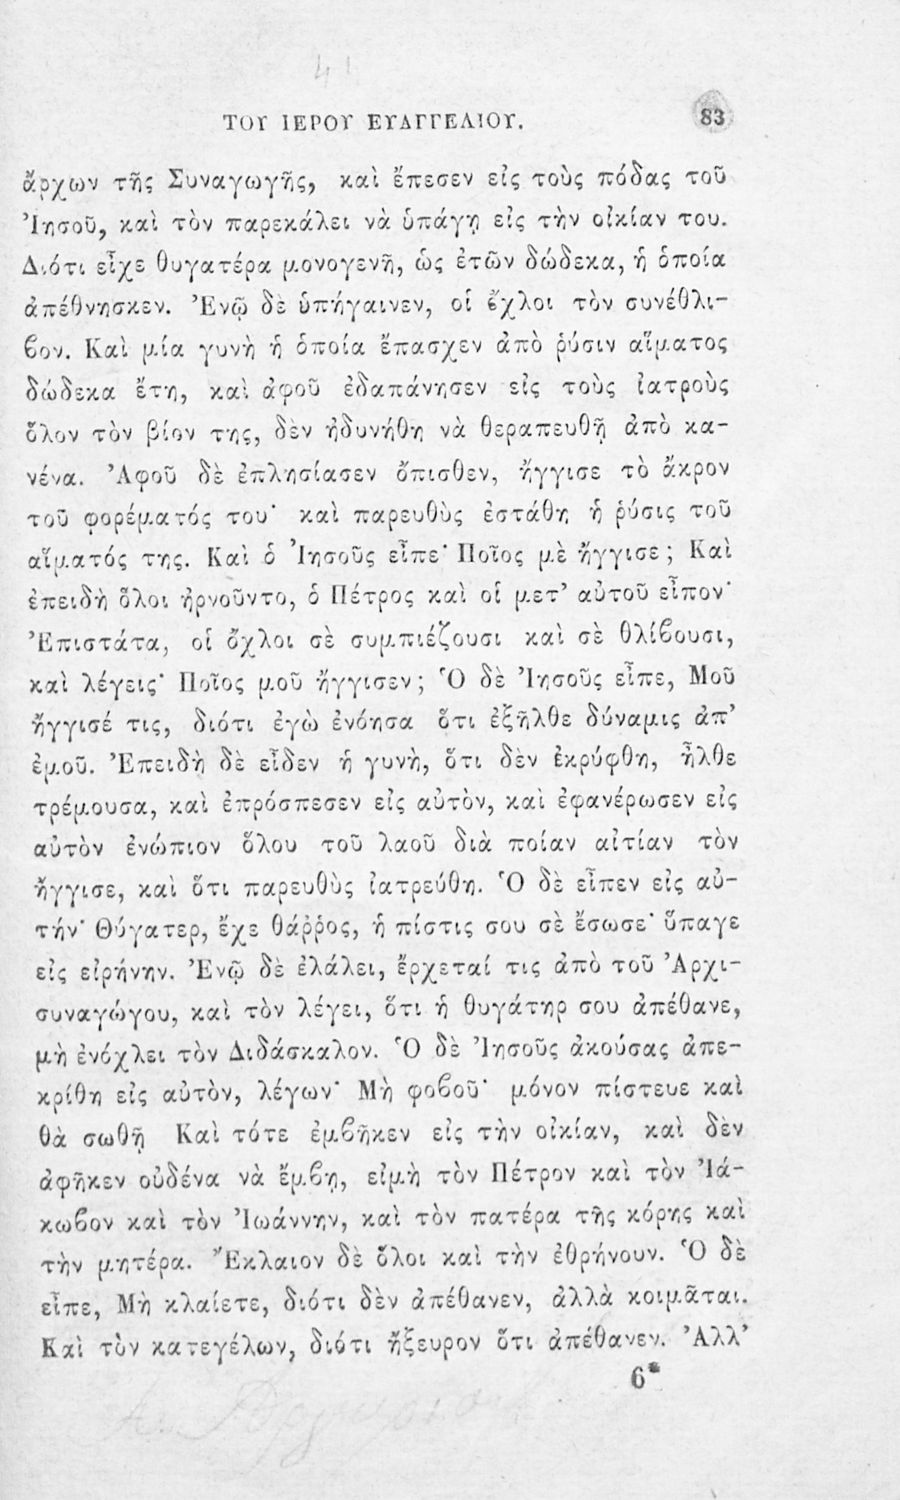 ΤΟΥ ΙΕΡΟΥ ΕΥΑΓΓΕΛΙΟΥ. 83
ἄρχων τῆς Συναγωγῆς, καὶ ἔπεσεν εἰς τοὺς πόδας τοῦ
Ἰησοῦ, καὶ τὸν παρεκάλει νὰ ὑπάγῃ εἰς τὴν οἰκίαν του.
Διότι εἶχε θυγατέρα μονογενῆ, ὡς ἐτῶν δώδεκα, ἡ ὁποία
ἀπέθνησκεν. Ἐνῷ δὲ ὑπήγαινεν, οἱ ὄχλοι τὸν συνέθλι-
ϐον. Καὶ μία γυνὴ ἡ ὁποία ἔπασχεν ἀπὸ ῥύσιν αἵματος
δώδεκα ἔτη, καὶ ἀφοῦ ἐδαπάνησεν εἰς τοὺς ἰατροὺς
ὅλον τὸν βίον της, δὲν ἠδυνήθη νὰ θεραπευθῇ ἀπὸ κα-
νένα. Ἀφοῦ δὲ ἐπλησίασεν ὄπισθεν, ἤγγισε τὸ ἄκρον
τοῦ φορέματός του· καὶ παρευθὺς ἐστάθη ἡ ῥύσις τοῦ
αἵματός της. Καὶ ὁ Ἰησοῦς εἶπε· Ποῖος μὲ ἤγγισε; Καὶ
ἐπειδὴ ὅλοι ἠρνοῦντο, ὁ Πέτρος καὶ οἱ μετ’ αὐτοῦ εἶπον·
Ἐπιστάτα, οἱ ὄχλοι σὲ συμπιέζουσι καὶ σὲ θλίϐουσι,
καὶ λέγεις· Ποῖος μοῦ ἤγγισεν; Ὁ δὲ Ἰησοῦς εἶπε, Μοῦ
ἤγγισέ τις, διότι ἐγὼ ἐνόησα ὅτι ἐξῆλθε δύναμις ἀπ’
ἐμοῦ. Ἐπειδὴ δὲ εἶδεν ἡ γυνὴ, ὅτι δὲν ἐκρύφθη, ἦλθε
τρέμουσα, καὶ ἐπρόσπεσεν εἰς αὐτὸν, καὶ ἐφανέρωσεν εἰς
αὐτὸν ἐνώπιον ὅλου τοῦ λαοῦ διὰ ποίαν αἰτίαν τὸν
ἤγγισε, καὶ ὅτι παρευθὺς ἰατρεύθη. Ὁ δὲ εἶπεν εἰς αὐ-
τήν· Θύγατερ, ἔχε θάῤῥος, ἡ πίστις σου σὲ ἔσωσε· ὕπαγε
εἰς εἰρήνην. Ἐνῷ δὲ ἐλάλει, ἔρχεταί τις ἀπὸ τοῦ Ἀρχι-
συναγώγου, καὶ τὸν λέγει, ὅτι ἡ θυγάτηρ σου ἀπέθανε,
μὴ ἐνόχλει τὸν Διδάσκαλον. Ὁ δὲ Ἰησοῦς ἀκούσας ἀπε-
κρίθη εἰς αὐτὸν, λέγων· Μὴ φοϐοῦ· μόνον πίστευε καὶ
θὰ σωθῇ Καὶ τότε ἐμϐῆκεν εἰς τὴν οἰκίαν, καὶ δὲν
ἀφῆκεν οὐδένα νὰ ἔμϐῃ, εἰμὴ τὸν Πέτρον καὶ τὸν Ἰά-
κωϐον καὶ τὸν Ἰωάννην, καὶ τὸν πατέρα τῆς κόρης καὶ
τὴν μητέρα. Ἔκλαιον δὲ ὅλοι καὶ τὴν ἐθρήνουν. Ὁ δὲ
εἶπε, Μὴ κλαίετε, διότι δὲν ἀπέθανεν, ἀλλὰ κοιμᾶται.
Καὶ τὸν κατεγέλων, διότι ἤξευρον ὅτι ἀπέθανεν. Ἀλλ’
6*